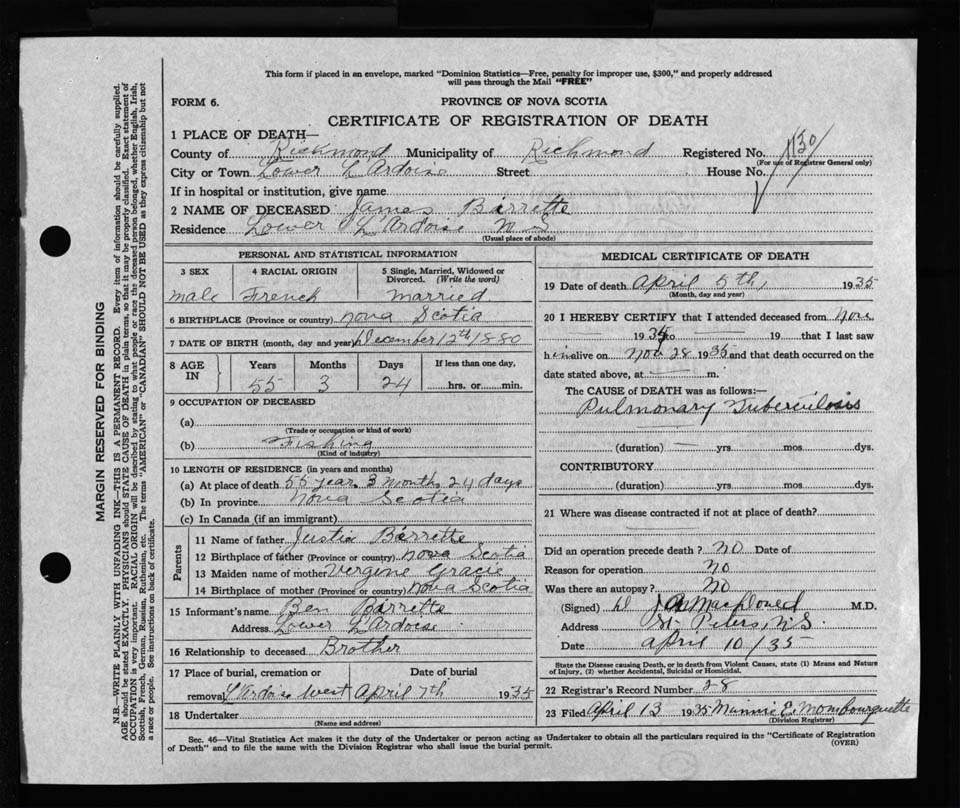 This form if placed in an envelope, marked "Dominion Statistics—Free, penalty for improper use, $300," and properly addressed
will pass through the Mail "FREE"
FORM 6.
PROVINCE OF NOVA SCOTIA
CERTIFICATE OF REGISTRATION OF DEATH
1 PLACE OF DEATH—
County of Richmond Municipality of Richmond Registered No. 1130
(For use of Registrar General only)
City or Town Lower L'Ardoise Street House No.
If in hospital or institution, give name
2 NAME OF DECEASED James Barrette
Residence Lower L'Ardoise N S
(Usual place of abode)
PERSONAL AND STATISTICAL INFORMATION
3 SEX 4 RACIAL ORIGIN 5 Single, Married, Widowed or
Divorced. (Write the word)
male French married
6 BIRTHPLACE (Province or country) Nova Scotia
7 DATE OF BIRTH (month, day and year) December 12th 1880
8 AGE IN Years Months Days If less than one day,
55 3 24 hrs. or min.
9 OCCUPATION OF DECEASED
(a)
(Trade or occupation or kind of work)
(b) Fishing
(Kind of industry)
10 LENGTH OF RESIDENCE (in years and months)
(a) At place of death 55 years 3 months 24 days
(b) In province Nova Scotia
(c) In Canada (if an immigrant)
Parents
11 Name of father Barrette
12 Birthplace of father (Province or country) Nova Scotia
13 Maiden name of mother Vergine Gracie
14 Birthplace of mother (Province or country) Nova Scotia
15 Informant's name Ben Barrette
Address Lower L'Ardoise
16 Relationship to deceased Brother
17 Place of burial, cremation or Date of burial
removal L'Ardoise West April 7th 1935
18 Undertaker
(Name and address)
MEDICAL CERTIFICATE OF DEATH
19 Date of death April 5th, 1935
(Month, day and year)
20 I HEREBY CERTIFY that I attended deceased from Nov.
1934 to 19 that I last saw
him alive on Nov 28 1935 and that death occurred on the
date stated above, at m.
The CAUSE of DEATH was as follows:—
Pulmonary Tuberculosis
(duration) yrs. mos. dys.
CONTRIBUTORY
(duration) yrs. mos. dys.
21 Where was disease contracted if not at place of death?
Did an operation precede death? No Date of
Reason for operation no
Was there an autopsy? No
(Signed) M.D.
Address St. Peters, N.S.
Date April 10/35
State the Disease causing Death, or in death from Violent Causes, state (1) Means and Nature
of Injury, (2) whether Accidental, Suicidal or Homicidal.
22 Registrar's Record Number 28
23 Filed April 13 1935 Minnie E. Mombourquette
(Division Registrar)
Sec. 46—Vital Statistics Act makes it the duty of the Undertaker or person acting as Undertaker to obtain all the particulars required in the "Certificate of Registration
of Death" and to file the same with the Division Registrar who shall issue the burial permit.
(OVER)
MARGIN RESERVED FOR BINDING
N.B.—WRITE PLAINLY WITH UNFADING INK—THIS IS A PERMANENT RECORD. Every item of information should be carefully supplied.
AGE should be stated EXACTLY. PHYSICIANS should STATE CAUSE OF DEATH in plain terms, so that it may be properly classified. Exact statement of
OCCUPATION is very important. RACIAL ORIGIN will be described by stating to what people or race the deceased person belonged, whether English, Irish,
Scottish, French, German, Russian, Ruthenian, etc. The terms "AMERICAN" or "CANADIAN" SHOULD NOT BE USED as they express citizenship but not
a race or people. See instructions on back of certificate.